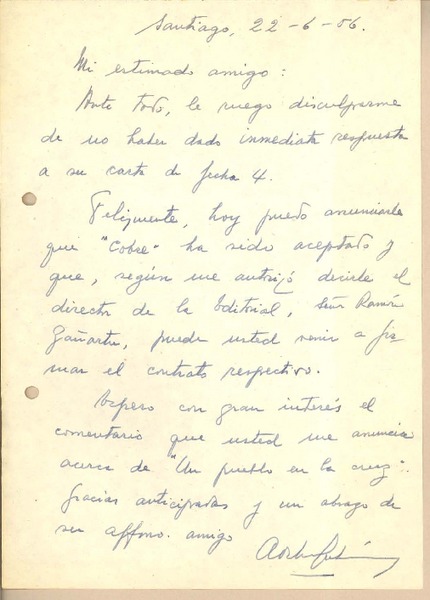 Santiago, 22-6-56.
Mi estimado amigo:
Ante todo, le ruego disculparme
de no haber dado inmediata respuesta
a su carta de fecha 4.
Felizmente, hoy puedo anunciarle
que "Cobre" ha sido aceptado y
que, según me autorizó decirle el
director de la Editorial, señor Ramón
Zañartu, puede usted venir a fir-
mar el contrato respectivo.
Espero con gran interés el
comentario que usted me anuncia
acerca de "Un pueblo en la cruz".
Gracias anticipadas y un abrazo de
su affmo. amigo